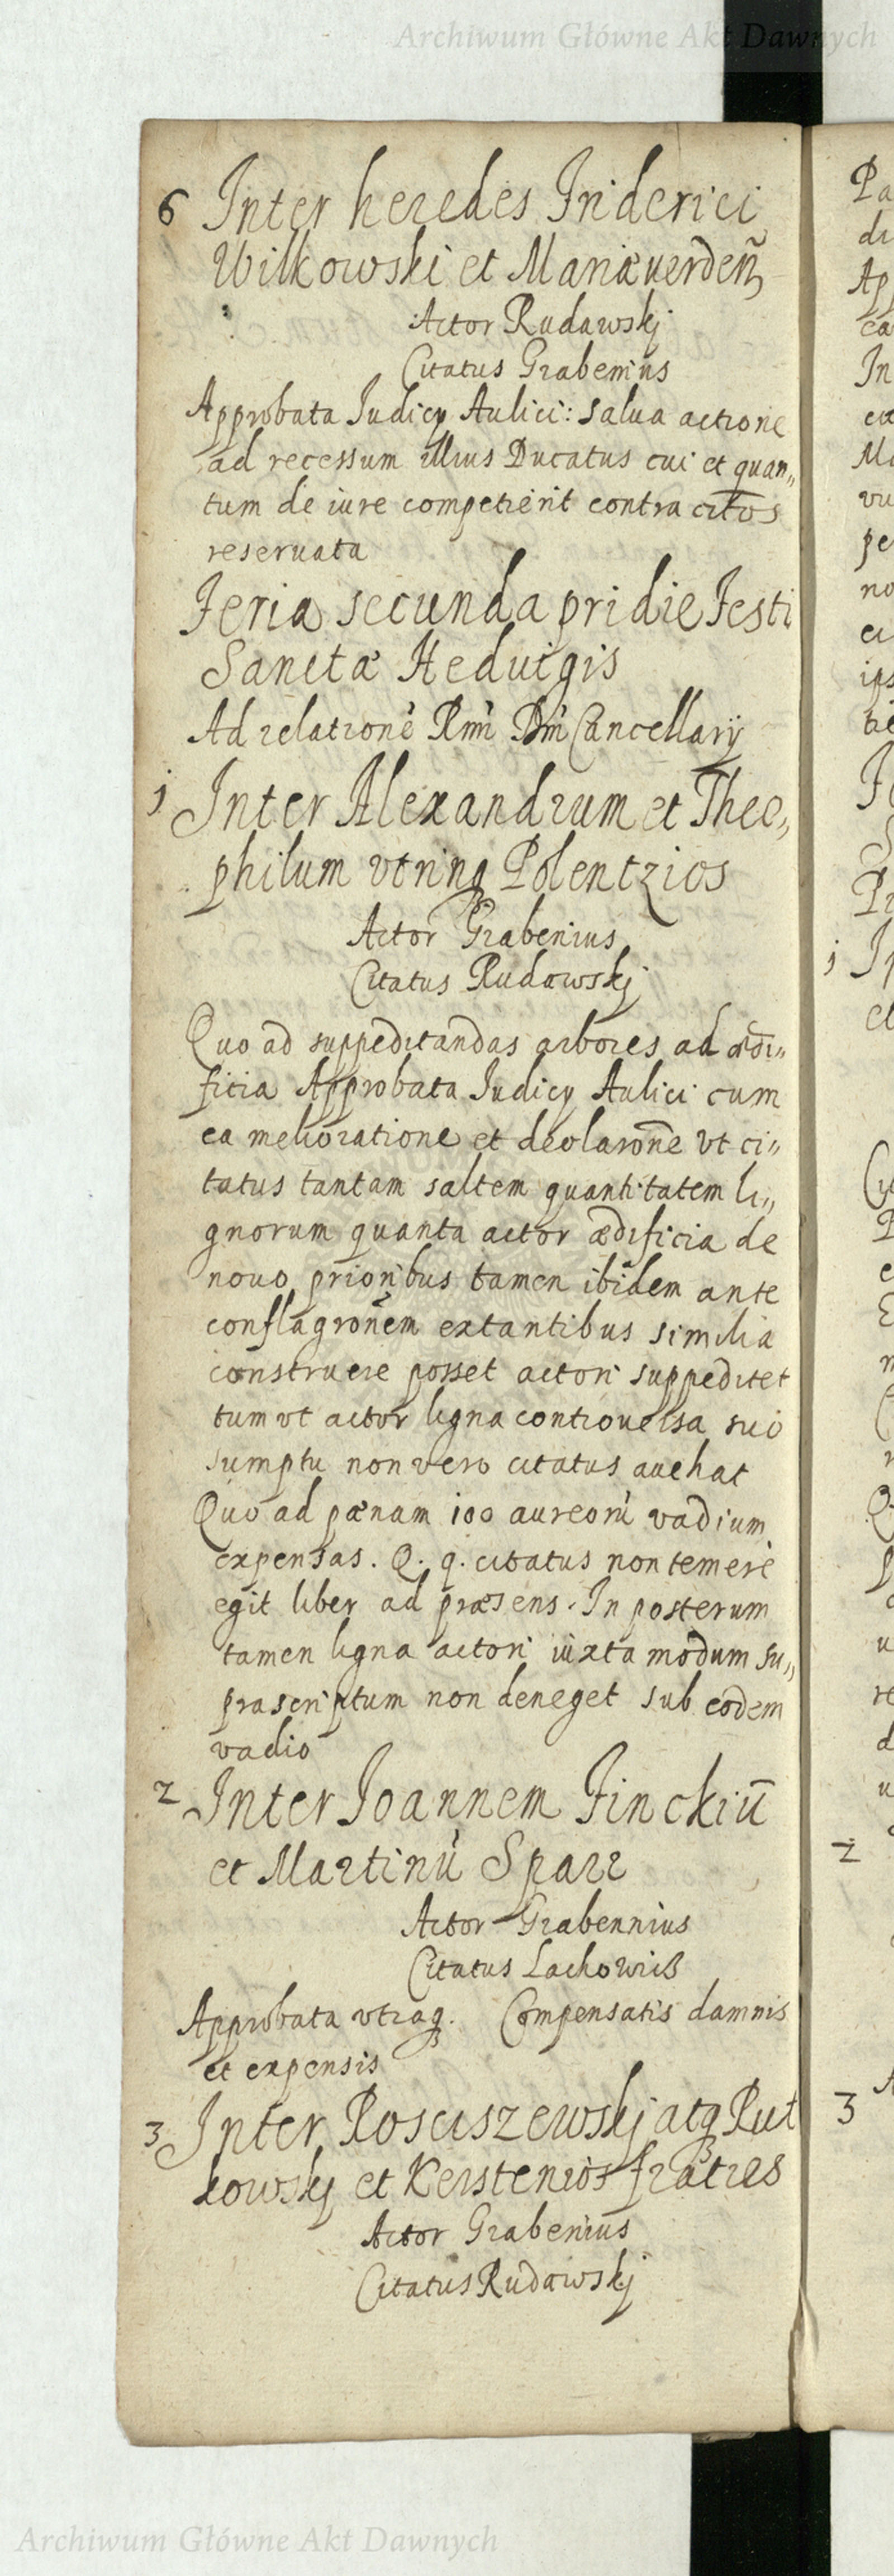 Archiwum Główne Akt Dawnych
6 Inter heredes Friderici
Wilkowski et Mariæuerdeñ
Actor Rudawskj
Citatus Grabenius
Approbata Judicy Aulici: salua actione
ad recessum illius Ducatus cui et quan„
tum de iure competierit contra citos
reseruata
Feria secunda pridie Festi
Sanctæ Heduigis
Ad relationē Rmi Dni Cancellarÿ
1 Inter Alexandrum et Theo„
philum vtrinq Polentzios
Actor Grabenius
Citatus Rudawskj
Quo ad suppeditandas arbores ad ædi„
ficia Approbata Judicy Aulici cum
ea melioratione et declarōne vt ci„
tatus tantam saltem quantitatem li„
gnorum quanta actor ædificia de
nouo prioribus tamen ibidem ante
conflagrōnem extantibus similia
construere posset actori suppeditet
tum vt actor ligna controuersa suo
sumptu non vero citatus auehat
Quo ad pænam 100 aureorū vadium
expensas. Q. q. citatus non temerè
egit liber ad præsens. In posterum
tamen ligna actori iuxta modum su„
prascriptum non deneget sub eodem
vadio
2 Inter Joannem Finckiū
et Martinū Sparr
Actor Grabennius
Citatus Lachowicß
Approbata vtraq. Compensatis damnis
et expensis
3 Inter Rosciszewskj atq Rut
kowskj et Kerstenios fratres
Actor Grabenius
Citatus Rudawskj
Archiwum Główne Akt Dawnych